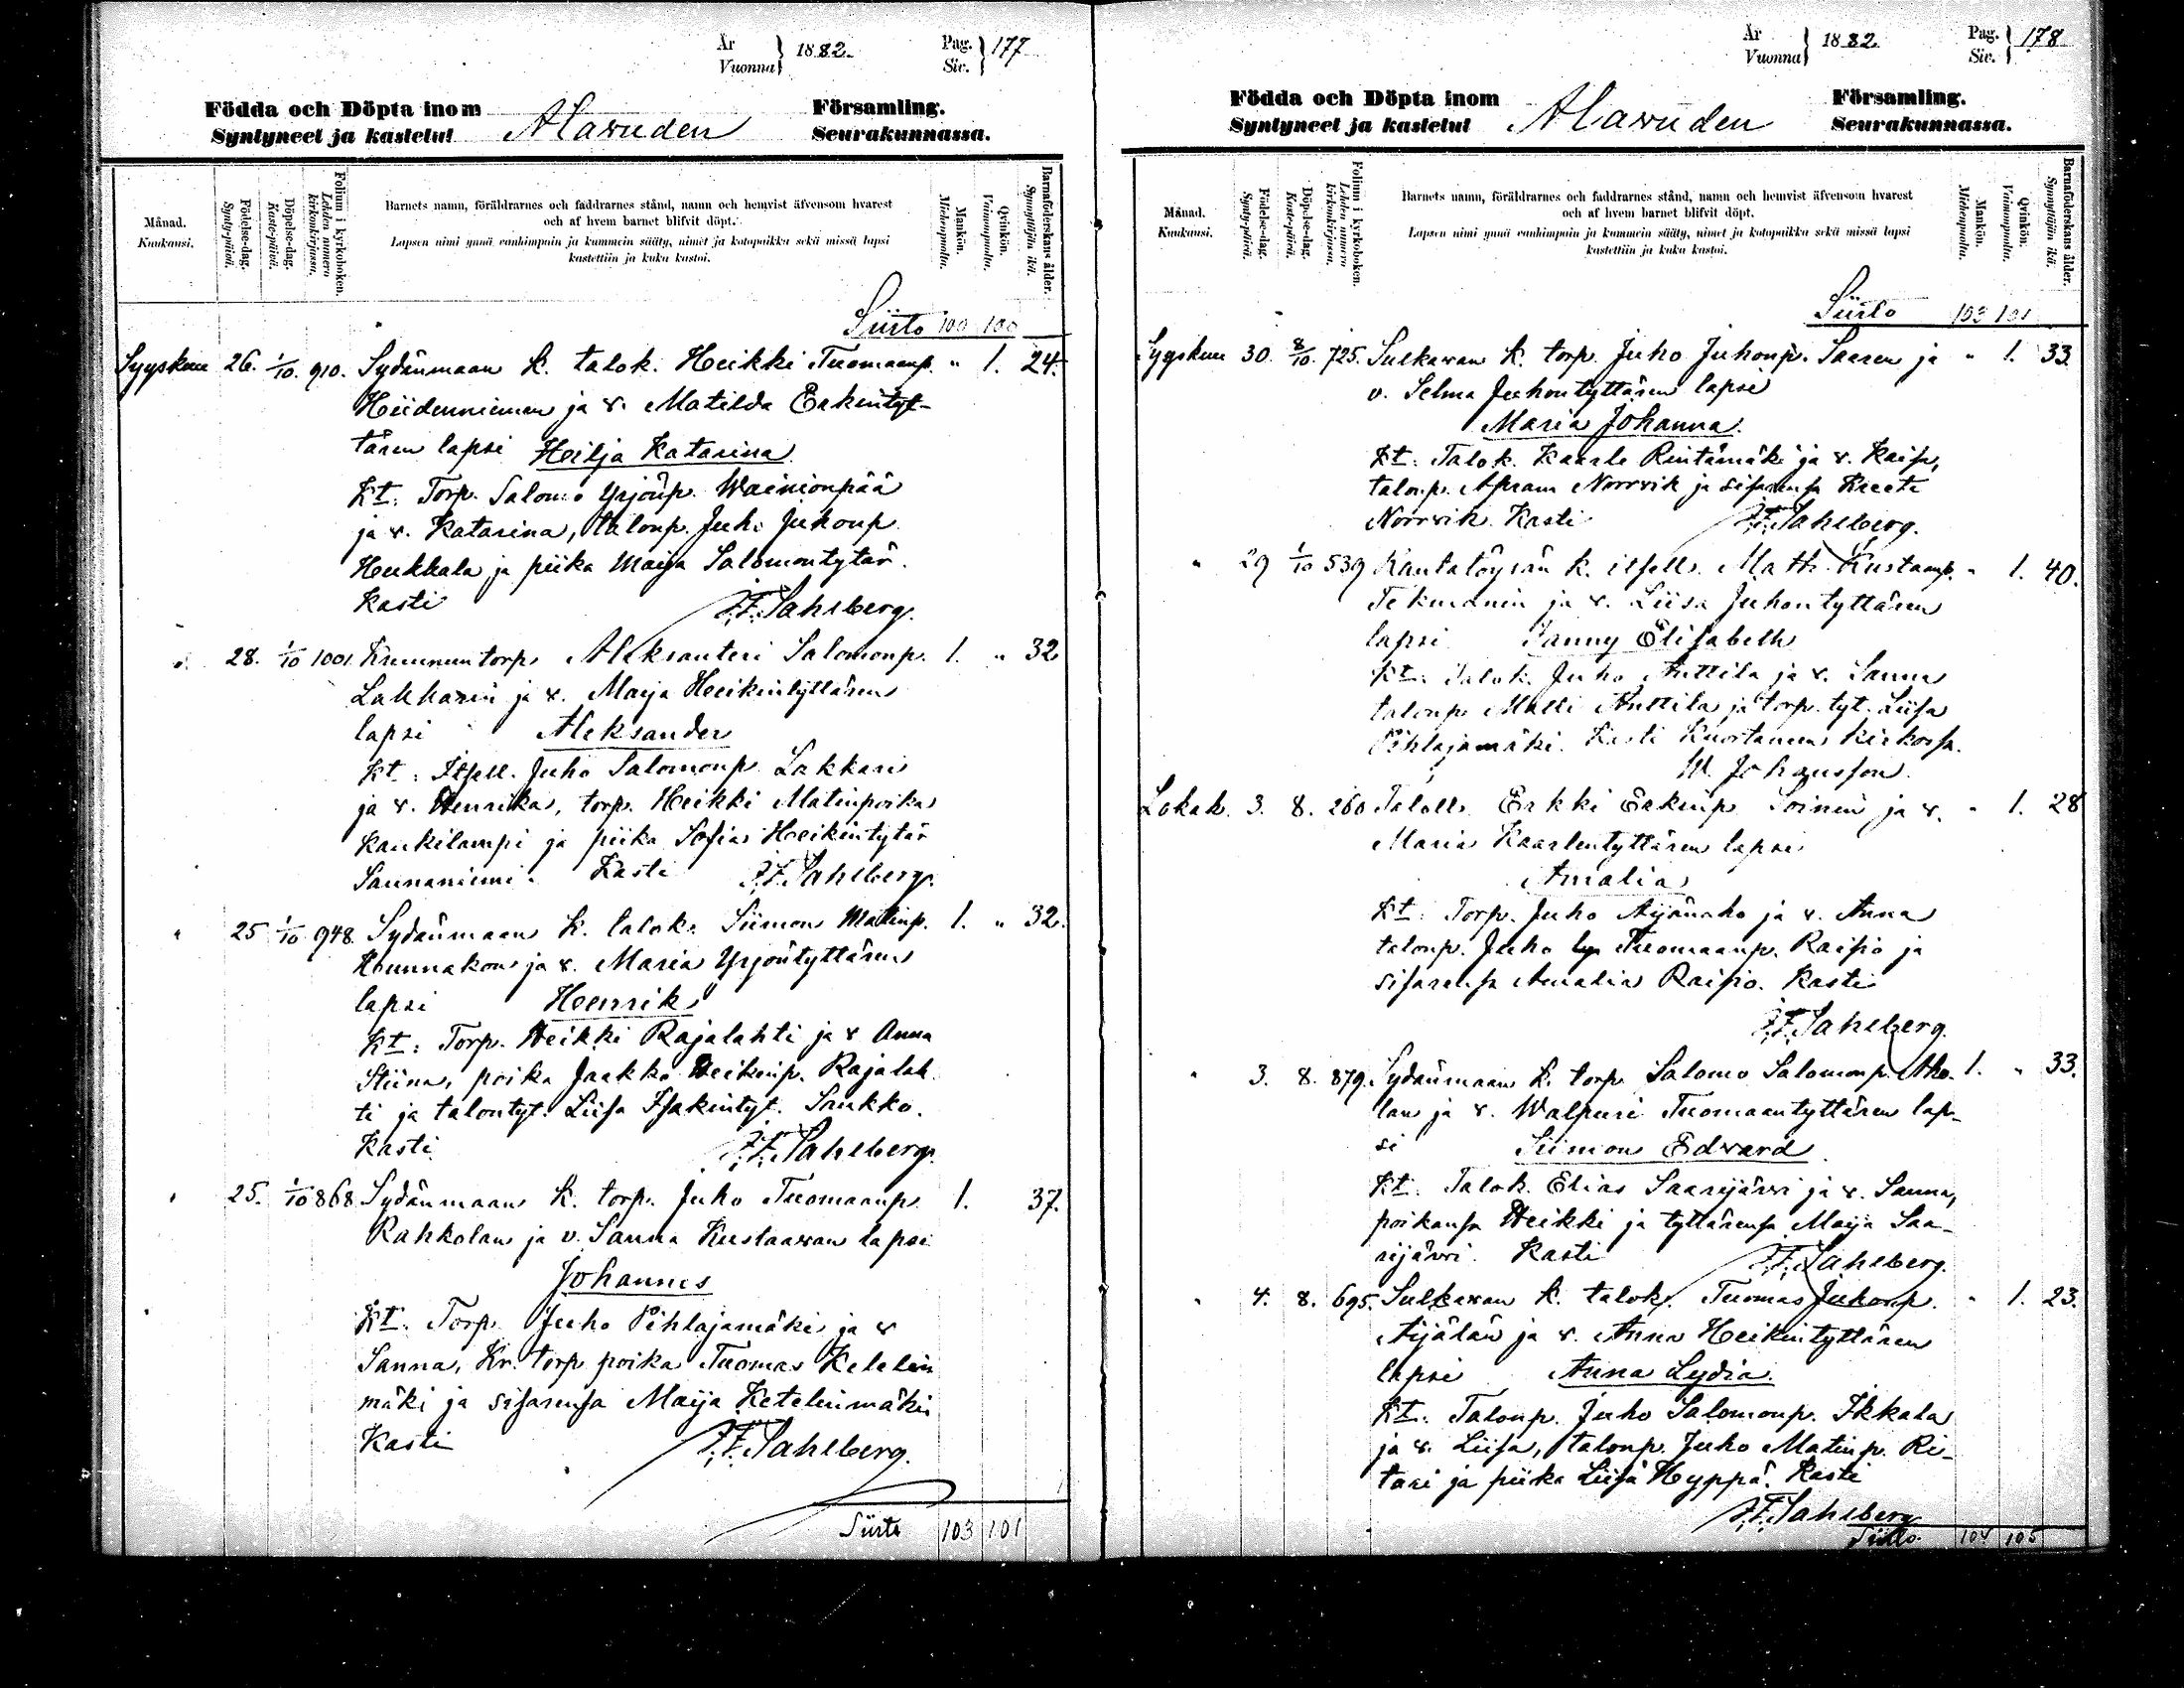 År
Vuonna } 1882.
Pag.
Siv. } 177
Födda och Döpta inom
Syntyneet ja kastetut
Alavuden
Församling.
Seurakunnassa.
Månad.
Kuukausi.
Födelse-dag.
Synty-päivä.
Döpelse-dag.
Kaste-päivä.
Folium i kyrkoboken.
Lehden numero kirkonkirjassa.
Barnets namn, föräldrarnes och faddrarnes stånd, namn och hemvist äfvensom hvarest
och af hvem barnet blifvit döpt.
Lapsen nimi ynnä vanhimpain ja kummein sääty, nimet ja kotopaikka sekä missä lapsi
kastettiin ja kuka kastoi.
Mankön.
Miehenpuolta.
Qvinkön.
Vaimonpuolta.
Barnaföderskans ålder.
Synnyttäjän ikä.
Siirto 100 100
Syyskuu 26. 1/10. 910. Sydänmaan k. talok. Heikki Tuomaanp. " 1. 24.
Hiidenniemen ja v. Matilda Erkintyt-
tären lapsi Heilja Katarina
Kt: Torp. Salomo Yrjönp. Wainionpää
ja v. Katarina, talonp. Juho Juhonp.
Heikkala ja piika Maija Salomontytär.
Kasti F.F. Sahlberg.
" 28. 1/10 1001. Kruunun torp. Aleksanteri Salomonp. 1. " 32
Lakkarin ja v. Maija Heikintyttären
lapsi Aleksander
Kt: Itsell. Juho Salomonp. Lakkari
ja v. Henrika, torp. Heikki Matinpoika
Kaukilampi ja piika Sofia Heikintytär
Saunaniemi. Kasti F.F. Sahlberg.
" 25 1/10 948. Sydänmaan k. talok. Siimon Matinp. 1. " 32.
Hunnakon ja v. Maria Yrjöntyttären
lapsi Henrik
Kt: Torp. Heikki Rajalahti ja v Anna
Stiina, poika Jaakko Heikinp. Rajalah
ti ja talontyt. Liisa Isakintyt. Saukko.
Kasti F.F. Sahlberg.
" 25. 1/10 868 Sydänmaan k. torp. Juho Tuomaanp. 1. 37.
Rahkolan ja v. Sanna Kustaavan lapsi
Johannes
Kt: Torp. Juho Pihlajamäki ja v
Sanna, Kr. torp poika Tuomas Ketelin
mäki ja sisarensa Maija Ketelinmäki
Kasti F.F. Sahlberg.
Siirto 103 101
År
Vuonna } 1882.
Pag.
Siv. } 178
Födda och Döpta inom
Syntyneet ja kastetut
Alavuden
Församling.
Seurakunnassa.
Månad.
Kuukausi.
Födelse-dag.
Synty-päivä.
Döpelse-dag.
Kaste-päivä.
Folium i kyrkoboken.
Lehden numero kirkonkirjassa.
Barnets namn, föräldrarnes och faddrarnes stånd, namn och hemvist äfvensom hvarest
och af hvem barnet blifvit döpt.
Lapsen nimi ynnä vanhimpain ja kummein sääty, nimet ja kotopaikka sekä missä lapsi
kastettiin ja kuka kastoi.
Mankön.
Miehenpuolta.
Qvinkön.
Vaimonpuolta.
Barnaföderskans ålder.
Synnyttäjän ikä.
Siirto 103 101
Syyskuu 30. 8/10. 725. Sulkavan k. torp. Juho Juhonp. Saaren ja " 1. 33.
v. Selma Juhontyttären lapsi
Maria Johanna.
Kt: Talok. Kaarle Rintamäki ja v. Kaisa,
talonp. Apram Norrvik ja sisarensa Kreeta
Norrvik. Kasti F.F. Sahlberg.
" 29 1/10 539 Rantatöysän k. itsell. Matti Kustaanp. " 1. 40.
Tekmanin ja v. Liisa Juhontyttären
lapsi Sanny Elisabeth
Kt: Talok. Juho Anttila ja v. Sanna
talonp. Matti Anttila ja torp. tyt. Liisa
Pihlajamäki. Kasti Kuortaneen kirkossa.
W. Johansson.
Lokak. 3. 8. 260 Taloll. Erkki Erkinp. Soinin ja v. " 1. 28
Maria Kaarlentyttären lapsi
Amalia
Kt: Torp. Juho Äijänaho ja v. Anna
talonp. Juho Tuomaanp. Raisio ja
sisarensa Amalia Raisio. Kasti
F.F. Sahlberg.
" 3. 8. 879. Sydänmaan k. torp. Salomo Salomonp. Aho- 1. " 33.
lan ja v. Walpuri Tuomaantyttären lap-
si Siimon Edvard.
Kt: Talok. Elias Saarijärvi ja v. Sanna,
poikansa Heikki ja tyttärensä Maija Saa-
rijärvi. Kasti F.F. Sahlberg.
" 4. 8. 695. Sulkavan k. talok. Tuomas Juhonp. " 1. 23.
Äijälän ja v. Anna Heikintyttären
lapsi Anna Lydia.
Kt: Talonp. Juho Salomonp. Ikkala
ja v. Liisa, talonp. Juho Matinp. Ri-
tari ja piika Liisa Hyppä. Kasti
F.F. Sahlberg
Siirto 104 105